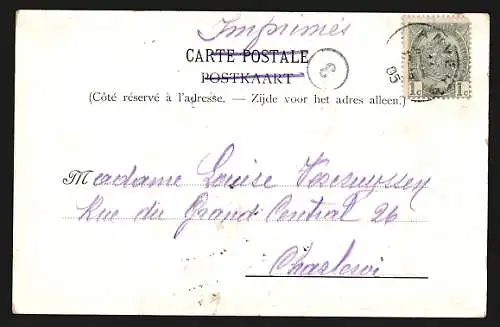 Imprimés
CARTE POSTALE
POSTKAART
(Côté réservé à l'adresse. — Zijde voor het adres alleen.)
1c 1c
05
Madame Louise
Rue du Grand Central 26
Charleroi